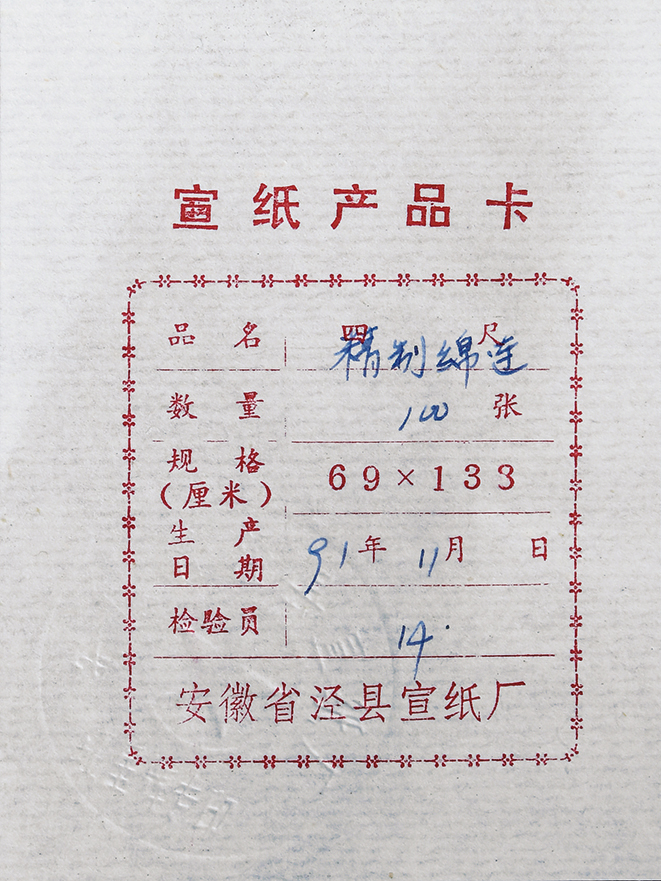 宣纸产品卡
品名 四尺
精制绵连
数量 100张
规格(厘米) 69×133
生产日期 91年11月 日
检验员 14.
安徽省泾县宣纸厂